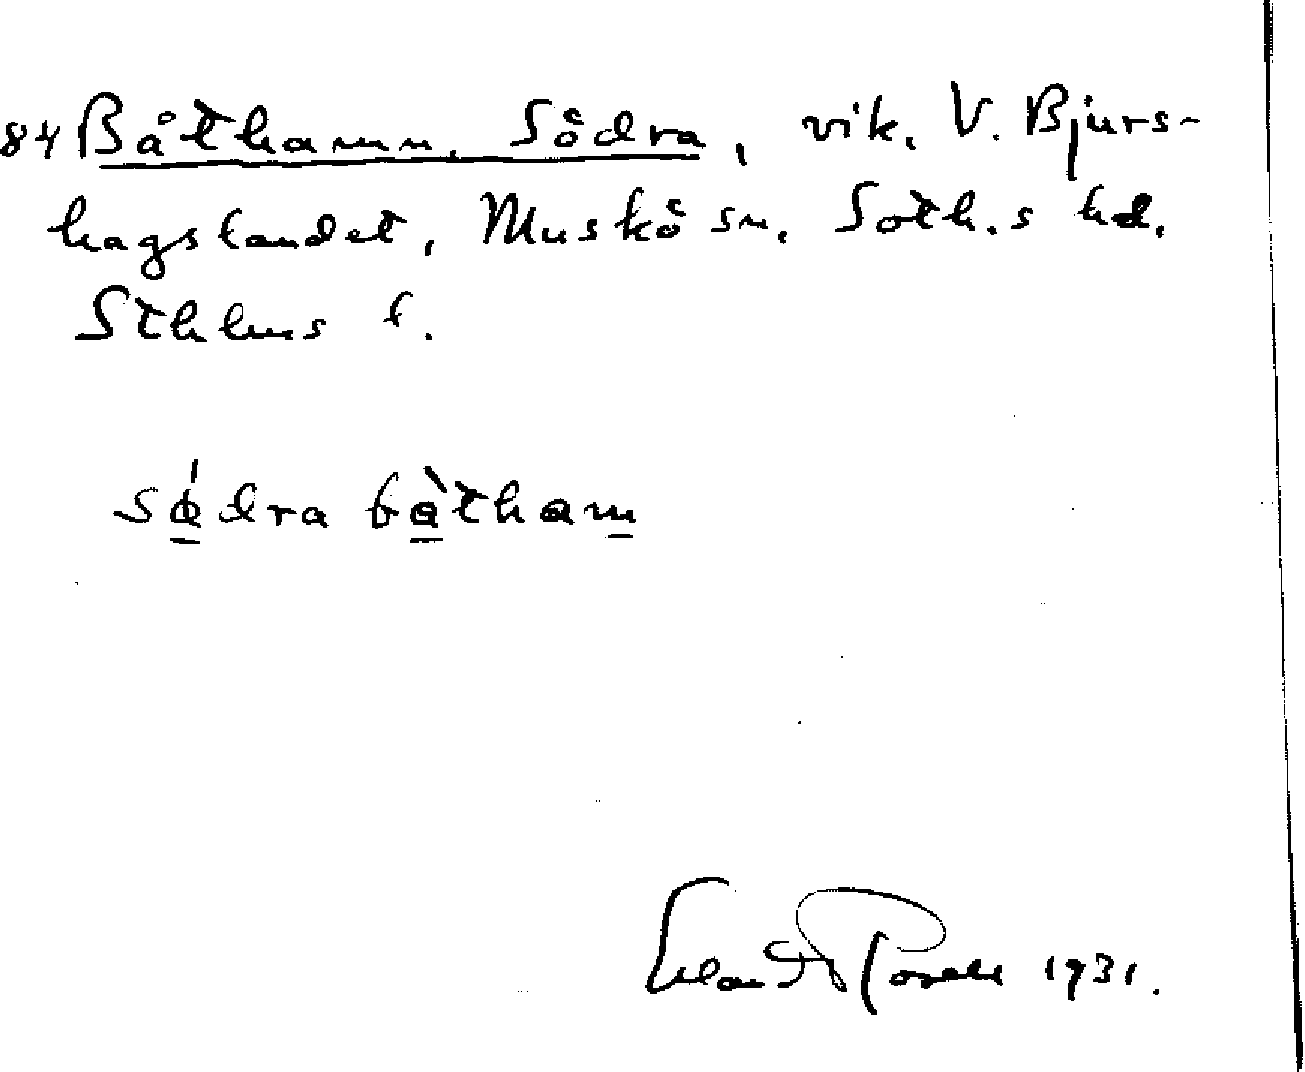 84 Båthamn, Södra, vik, V. Bjurs-
hagslandet, Muskö sn. Soth.s hd.
Sthlms l.
södra båtham
1931.